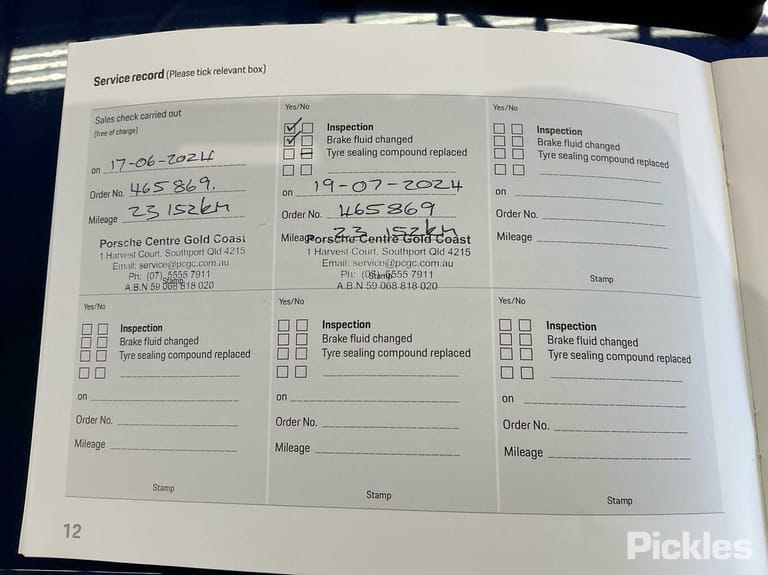 Service record (Please tick relevant box)
Sales check carried out
(free of charge)
on 17-06-2024
Order No. 465869.
Mileage 23152km
Porsche Centre Gold Coast
1 Harvest Court, Southport Qld 4215
Email: service@pcgc.com.au
Ph: (07) 5555 7911
Stamp
A.B.N 59 068 818 020
Yes/No
Inspection
Brake fluid changed
Tyre sealing compound replaced
on 19-07-2024
Order No. 465869
Mileage 23 152km
Porsche Centre Gold Coast
1 Harvest Court, Southport Qld 4215
Email: service@pcgc.com.au
Ph: (07) 5555 7911
Stamp
A.B.N 59 068 818 020
Yes/No
Inspection
Brake fluid changed
Tyre sealing compound replaced
on
Order No.
Mileage
Stamp
Yes/No
Inspection
Brake fluid changed
Tyre sealing compound replaced
on
Order No.
Mileage
Stamp
Yes/No
Inspection
Brake fluid changed
Tyre sealing compound replaced
on
Order No.
Mileage
Stamp
Yes/No
Inspection
Brake fluid changed
Tyre sealing compound replaced
on
Order No.
Mileage
Stamp
12
Pickles